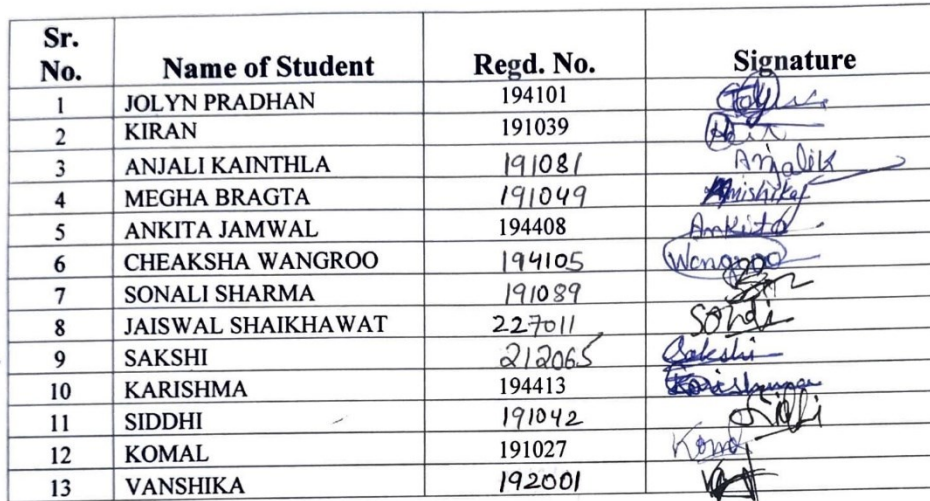 Sr. No. Name of Student Regd. No. Signature
1 JOLYN PRADHAN 194101
2 KIRAN 191039
3 ANJALI KAINTHLA 191081 Anjalik
4 MEGHA BRAGTA 191049
5 ANKITA JAMWAL 194408 Ankita
6 CHEAKSHA WANGROO 194105 Wangroo
7 SONALI SHARMA 191089
8 JAISWAL SHAIKHAWAT 227011
9 SAKSHI 212065 Sakshi
10 KARISHMA 194413 Karishma
11 SIDDHI 191042
12 KOMAL 191027
13 VANSHIKA 192001